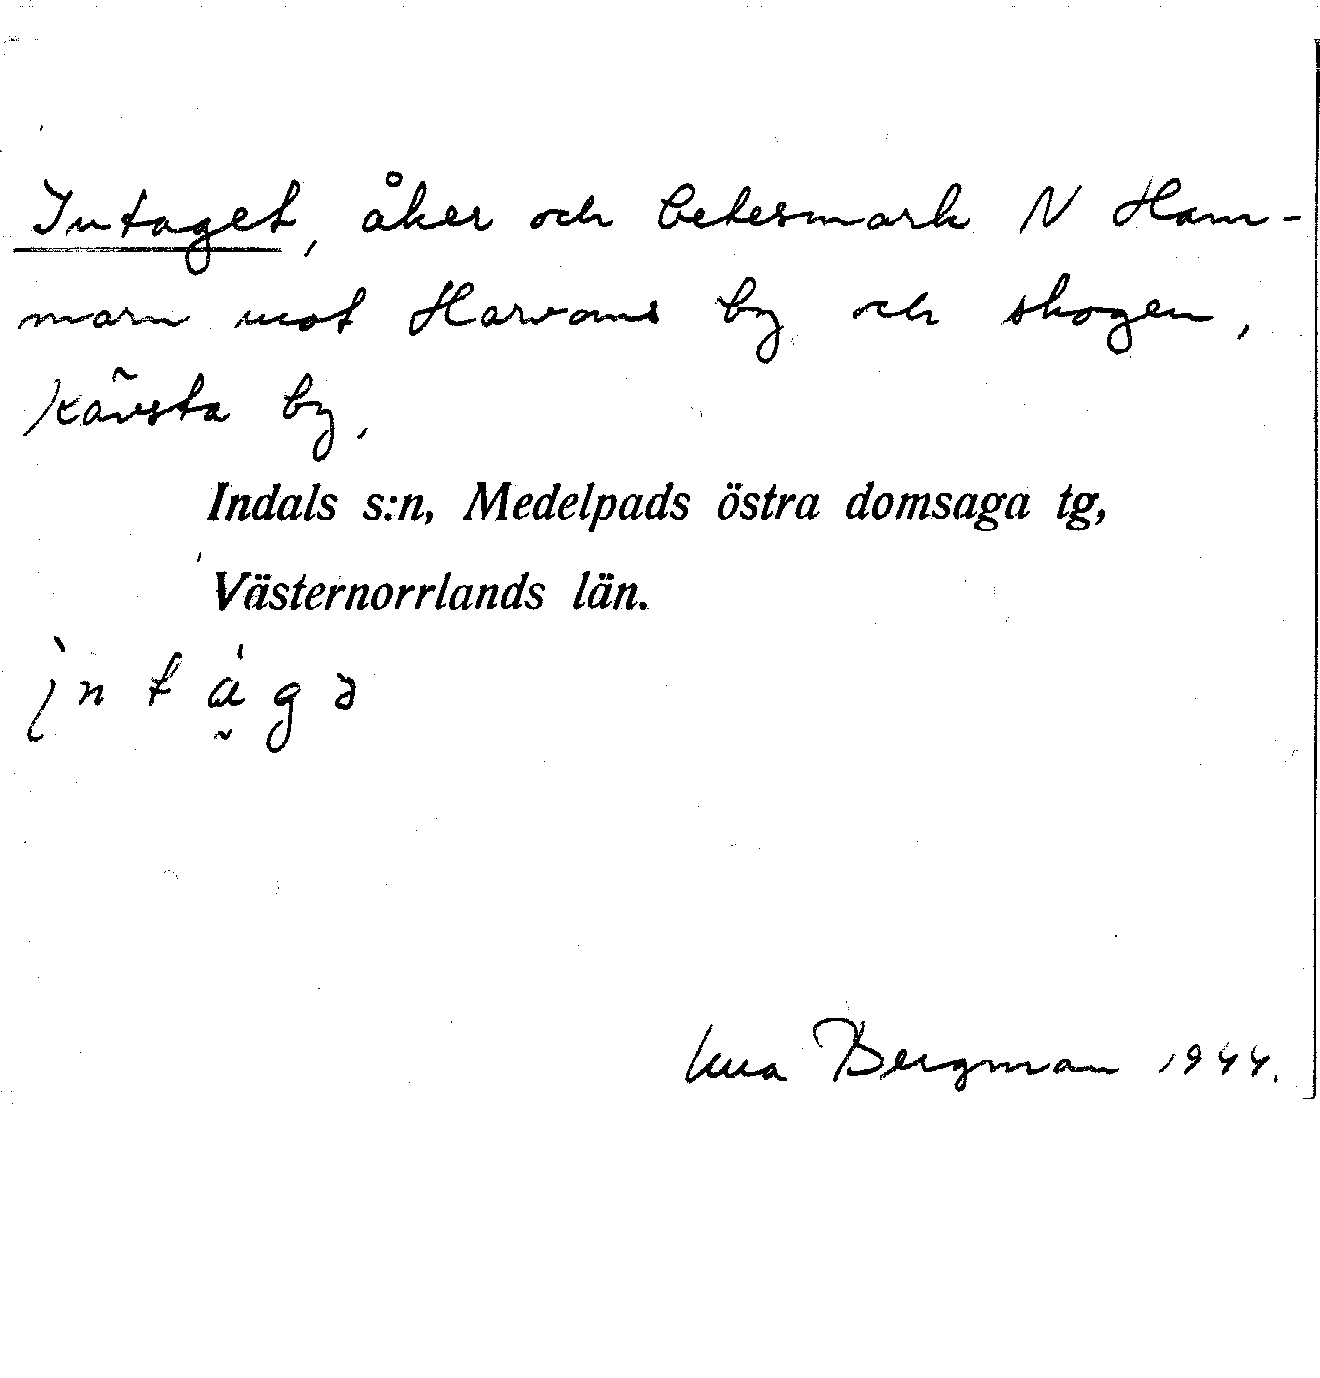 Intaget, åker och betesmark N Ham-
marn mot Harvoms by och skogen,
Kävsta by.
Indals s:n, Medelpads östra domsaga tg,
Västernorrlands län.
ìntága
Bergman 1944.